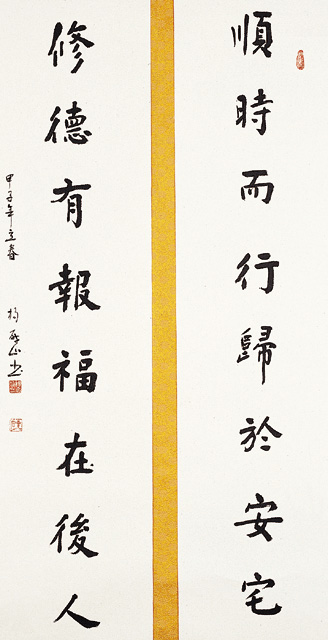 順時而行歸於安宅
修德有報福在後人
甲子年立春